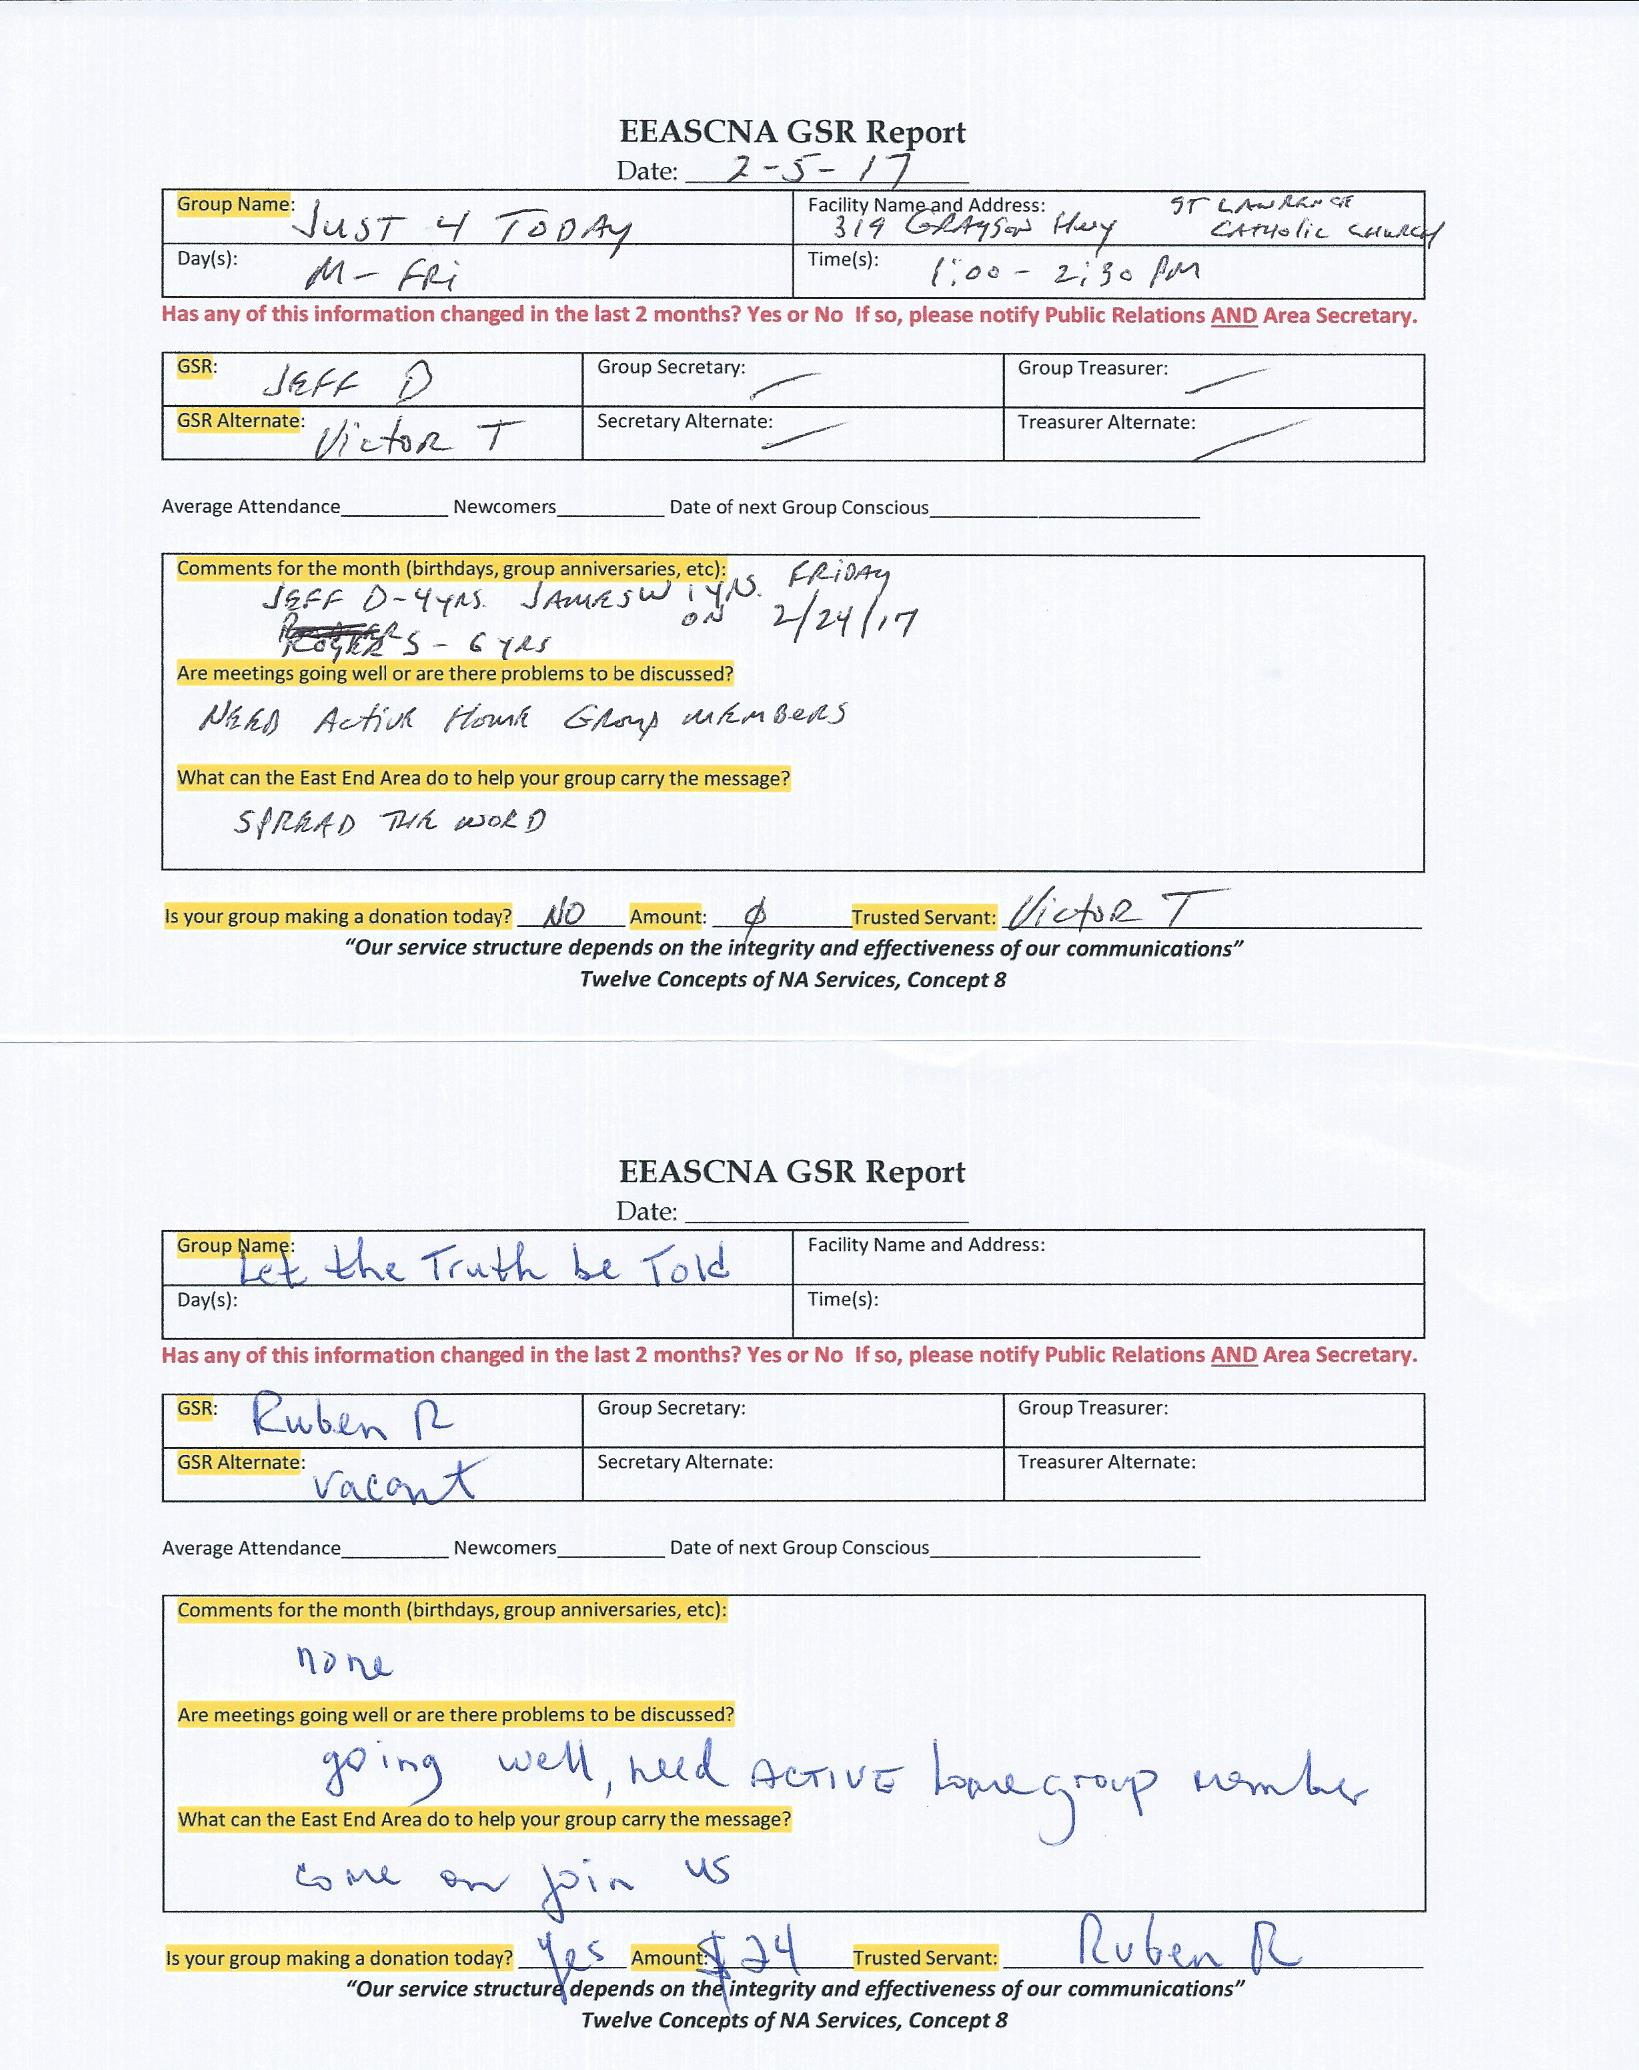 EEASCNA GSR Report
Date: 2-5-17
Group Name: JUST 4 TODAY
Facility Name and Address: ST LAWRENCE
319 GRAYSON Hwy CATHOLIC CHURCH
Day(s): M - FRi
Time(s): 1:00 - 2:30 PM
Has any of this information changed in the last 2 months? Yes or No If so, please notify Public Relations AND Area Secretary.
GSR: JEFF D
Group Secretary: —
Group Treasurer: —
GSR Alternate: Victor T
Secretary Alternate: —
Treasurer Alternate: —
Average Attendance__________ Newcomers__________ Date of next Group Conscious__________
Comments for the month (birthdays, group anniversaries, etc): FRIDAY
JEFF D-4YRS. JAMES W 1 YRS. ON 2/24/17
ROGER S - 6 YRS
Are meetings going well or are there problems to be discussed?
NEED Active Home Group MEMBERS
What can the East End Area do to help your group carry the message?
SPREAD THE WORD
Is your group making a donation today? NO Amount: ϕ Trusted Servant: Victor T
“Our service structure depends on the integrity and effectiveness of our communications”
Twelve Concepts of NA Services, Concept 8
EEASCNA GSR Report
Date: __________
Group Name: Let the Truth be Told
Facility Name and Address:
Day(s):
Time(s):
Has any of this information changed in the last 2 months? Yes or No If so, please notify Public Relations AND Area Secretary.
GSR: Ruben R
Group Secretary:
Group Treasurer:
GSR Alternate: vacant
Secretary Alternate:
Treasurer Alternate:
Average Attendance__________ Newcomers__________ Date of next Group Conscious__________
Comments for the month (birthdays, group anniversaries, etc):
none
Are meetings going well or are there problems to be discussed?
going well, need ACTIVE homegroup member
What can the East End Area do to help your group carry the message?
come on join us
Is your group making a donation today? Yes Amount: $24 Trusted Servant: Ruben R
“Our service structure depends on the integrity and effectiveness of our communications”
Twelve Concepts of NA Services, Concept 8